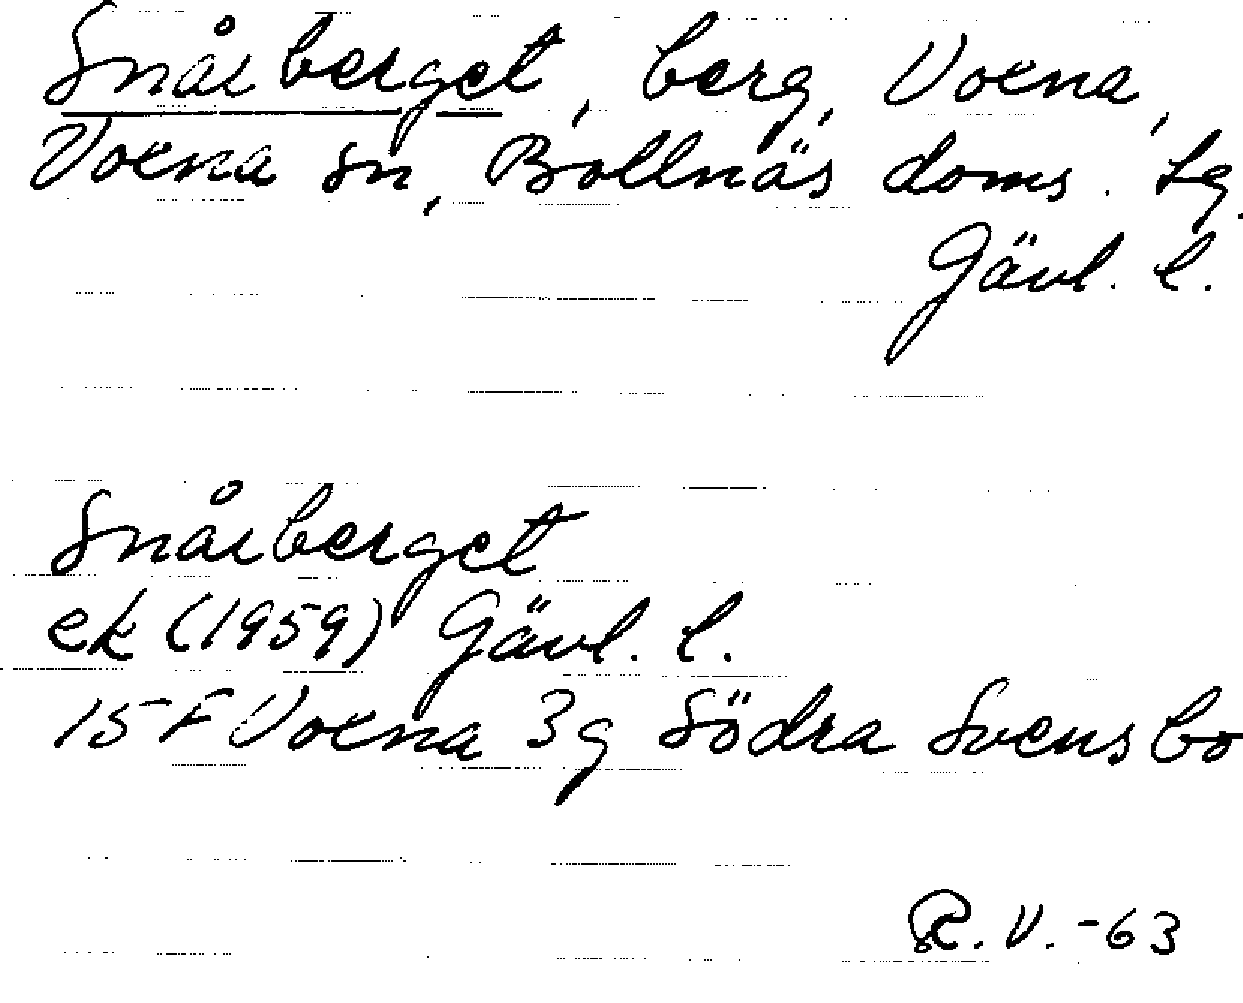 Snårberget, berg, Voxna,
Voxna sn, Bollnäs doms. tg.
Gävl. l.
Snårberget
ek (1959) Gävl. l.
15 F Voxna 3g Södra Svensbo
R. V. -63